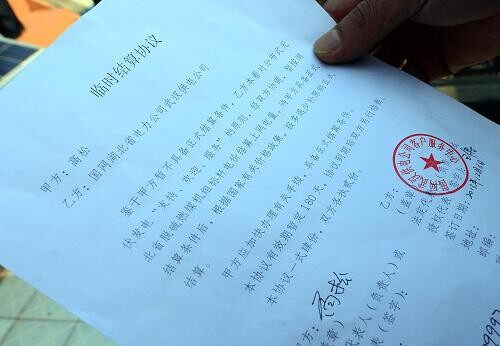 临时结算协议
甲方：高松
乙方：国网湖北省电力公司武汉供电公司
鉴于甲方暂不具备正式结算条件，乙方本着对分布式光
伏发电“支持、欢迎、服务”的原则，经双方协商，暂按湖
北省脱硫燃煤机组标杆电价结算上网电量，待甲方具备正式
结算条件后，根据国家有关价格政策，按多退少补原则正式
结算。
甲方应加快办理有关手续，具备正式结算条件。
本协议有效期暂定180天，协议到期后双方另行协商。
本协议一式肆份，双方各执贰份。
方：高松
章）
代表人（负责人）或
代表（签字）：
乙方：
（盖章）
法定代
授权代
签订日期：
地址：
邮编：
武汉供电公司客户服务中心